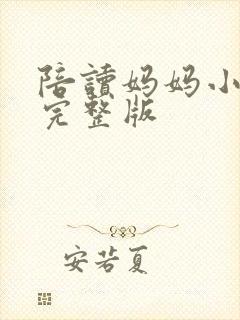 陪讀妈妈小
完整版
安若夏